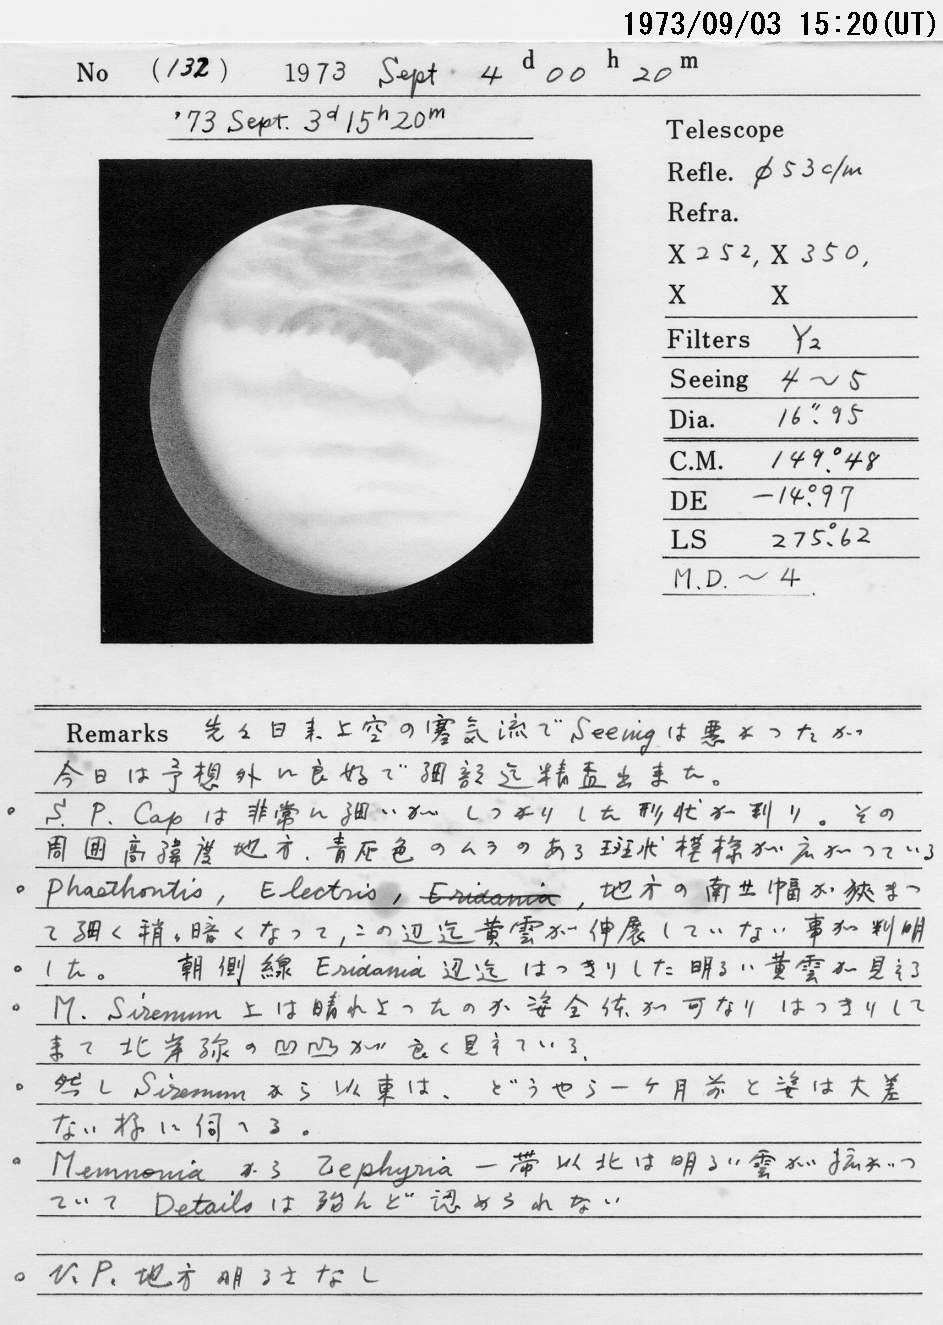 1973/09/03 15:20(UT)
No (132) 1973 Sept. 4 d 00 h 20 m
'73 Sept. 3d 15h 20m
Telescope
Refle. φ53c/m
Refra.
X 252, X 350,
X X
Filters Y2
Seeing 4~5
Dia. 16″.95
C.M. 149°.48
DE -14°.97
LS 275°.62
M.D. ~ 4
Remarks 先々日来上空の寒気流でSeeingは悪かったが
今日は予想外に良好で細部迄精査出来た。
○ S. P. Capは非常に細いがしっかりした形状が判り。その
周囲高緯度地方、青灰色のムラのある斑状模様が広がっている
○ Phaethontis, Electris, Eridania, 地方の南北幅が狭まっ
て細く稍々暗くなって、この辺迄黄雲が伸展していない事が判明
○ した。 朝側線Eridania辺迄はっきりした明るい黄雲が見える
○ M. Sirenum上は晴れよったのか姿全体が可なりはっきりして
来て北岸線の凹凸が良く見えている。
○ 然しSirenumから以東は、どうやら一ケ月前と姿は大差
ない様に伺へる。
○ MemnoniaからZephyria一帯以北は明るい雲が拡がっ
ていてDetailsは殆んど認められない
○ N.P.地方明るさなし